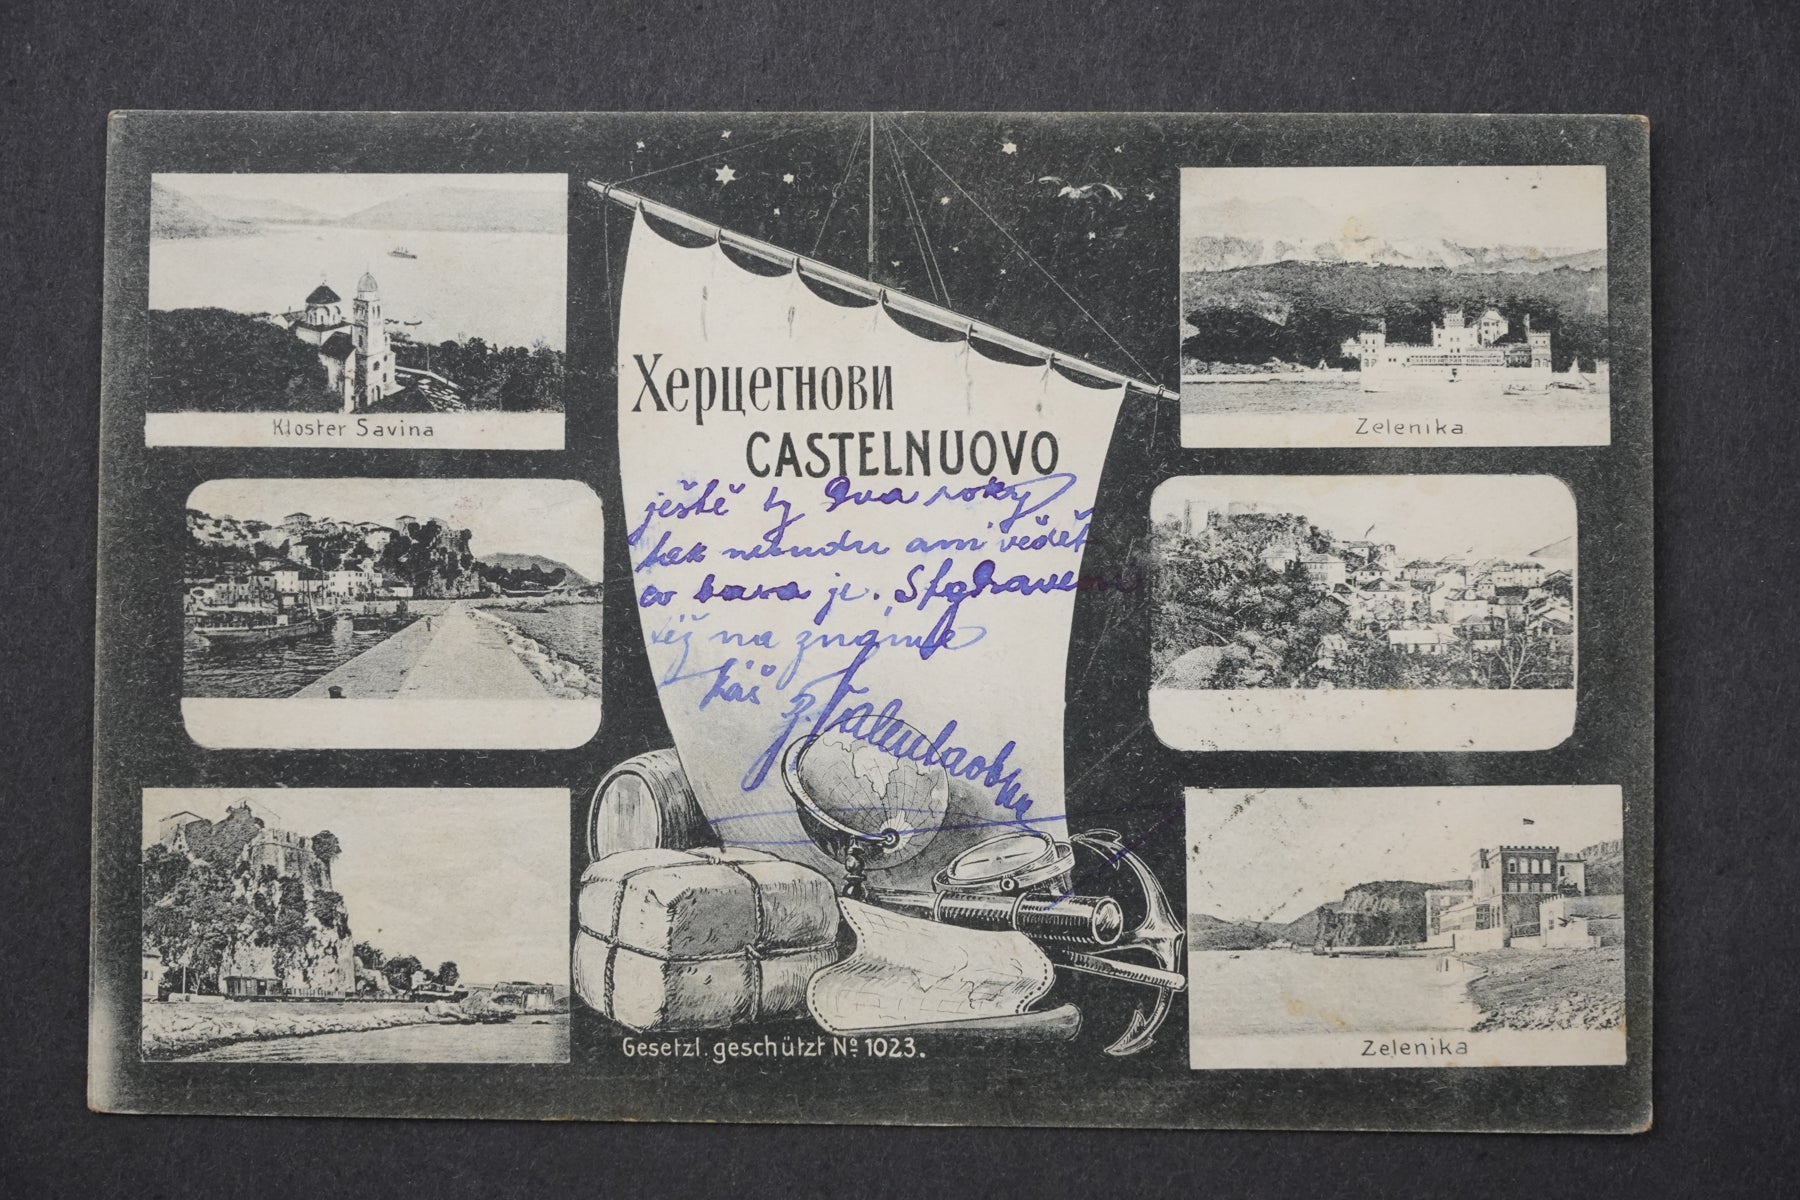 Херцегнови
CASTELNUOVO
ještě ty dva roky
tak nebudu ani vědět
co barva je. S pozdravem
též na známé
Váš
Kloster Savina
Zelenika
Zelenika
Gesetzl. geschützt Nº 1023.